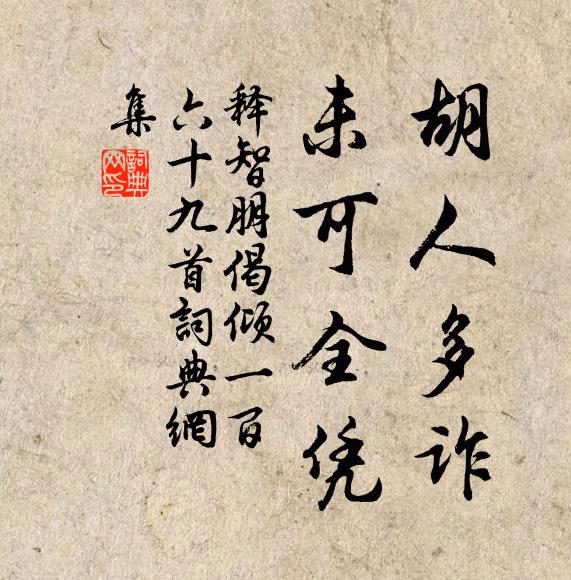 胡人多诈
未可全凭
释智朋偈倾一百
六十九首詞典網
集
詞典網印